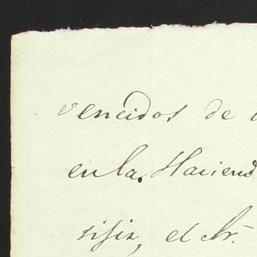 vencidos de
en la Haciend
el Sr.